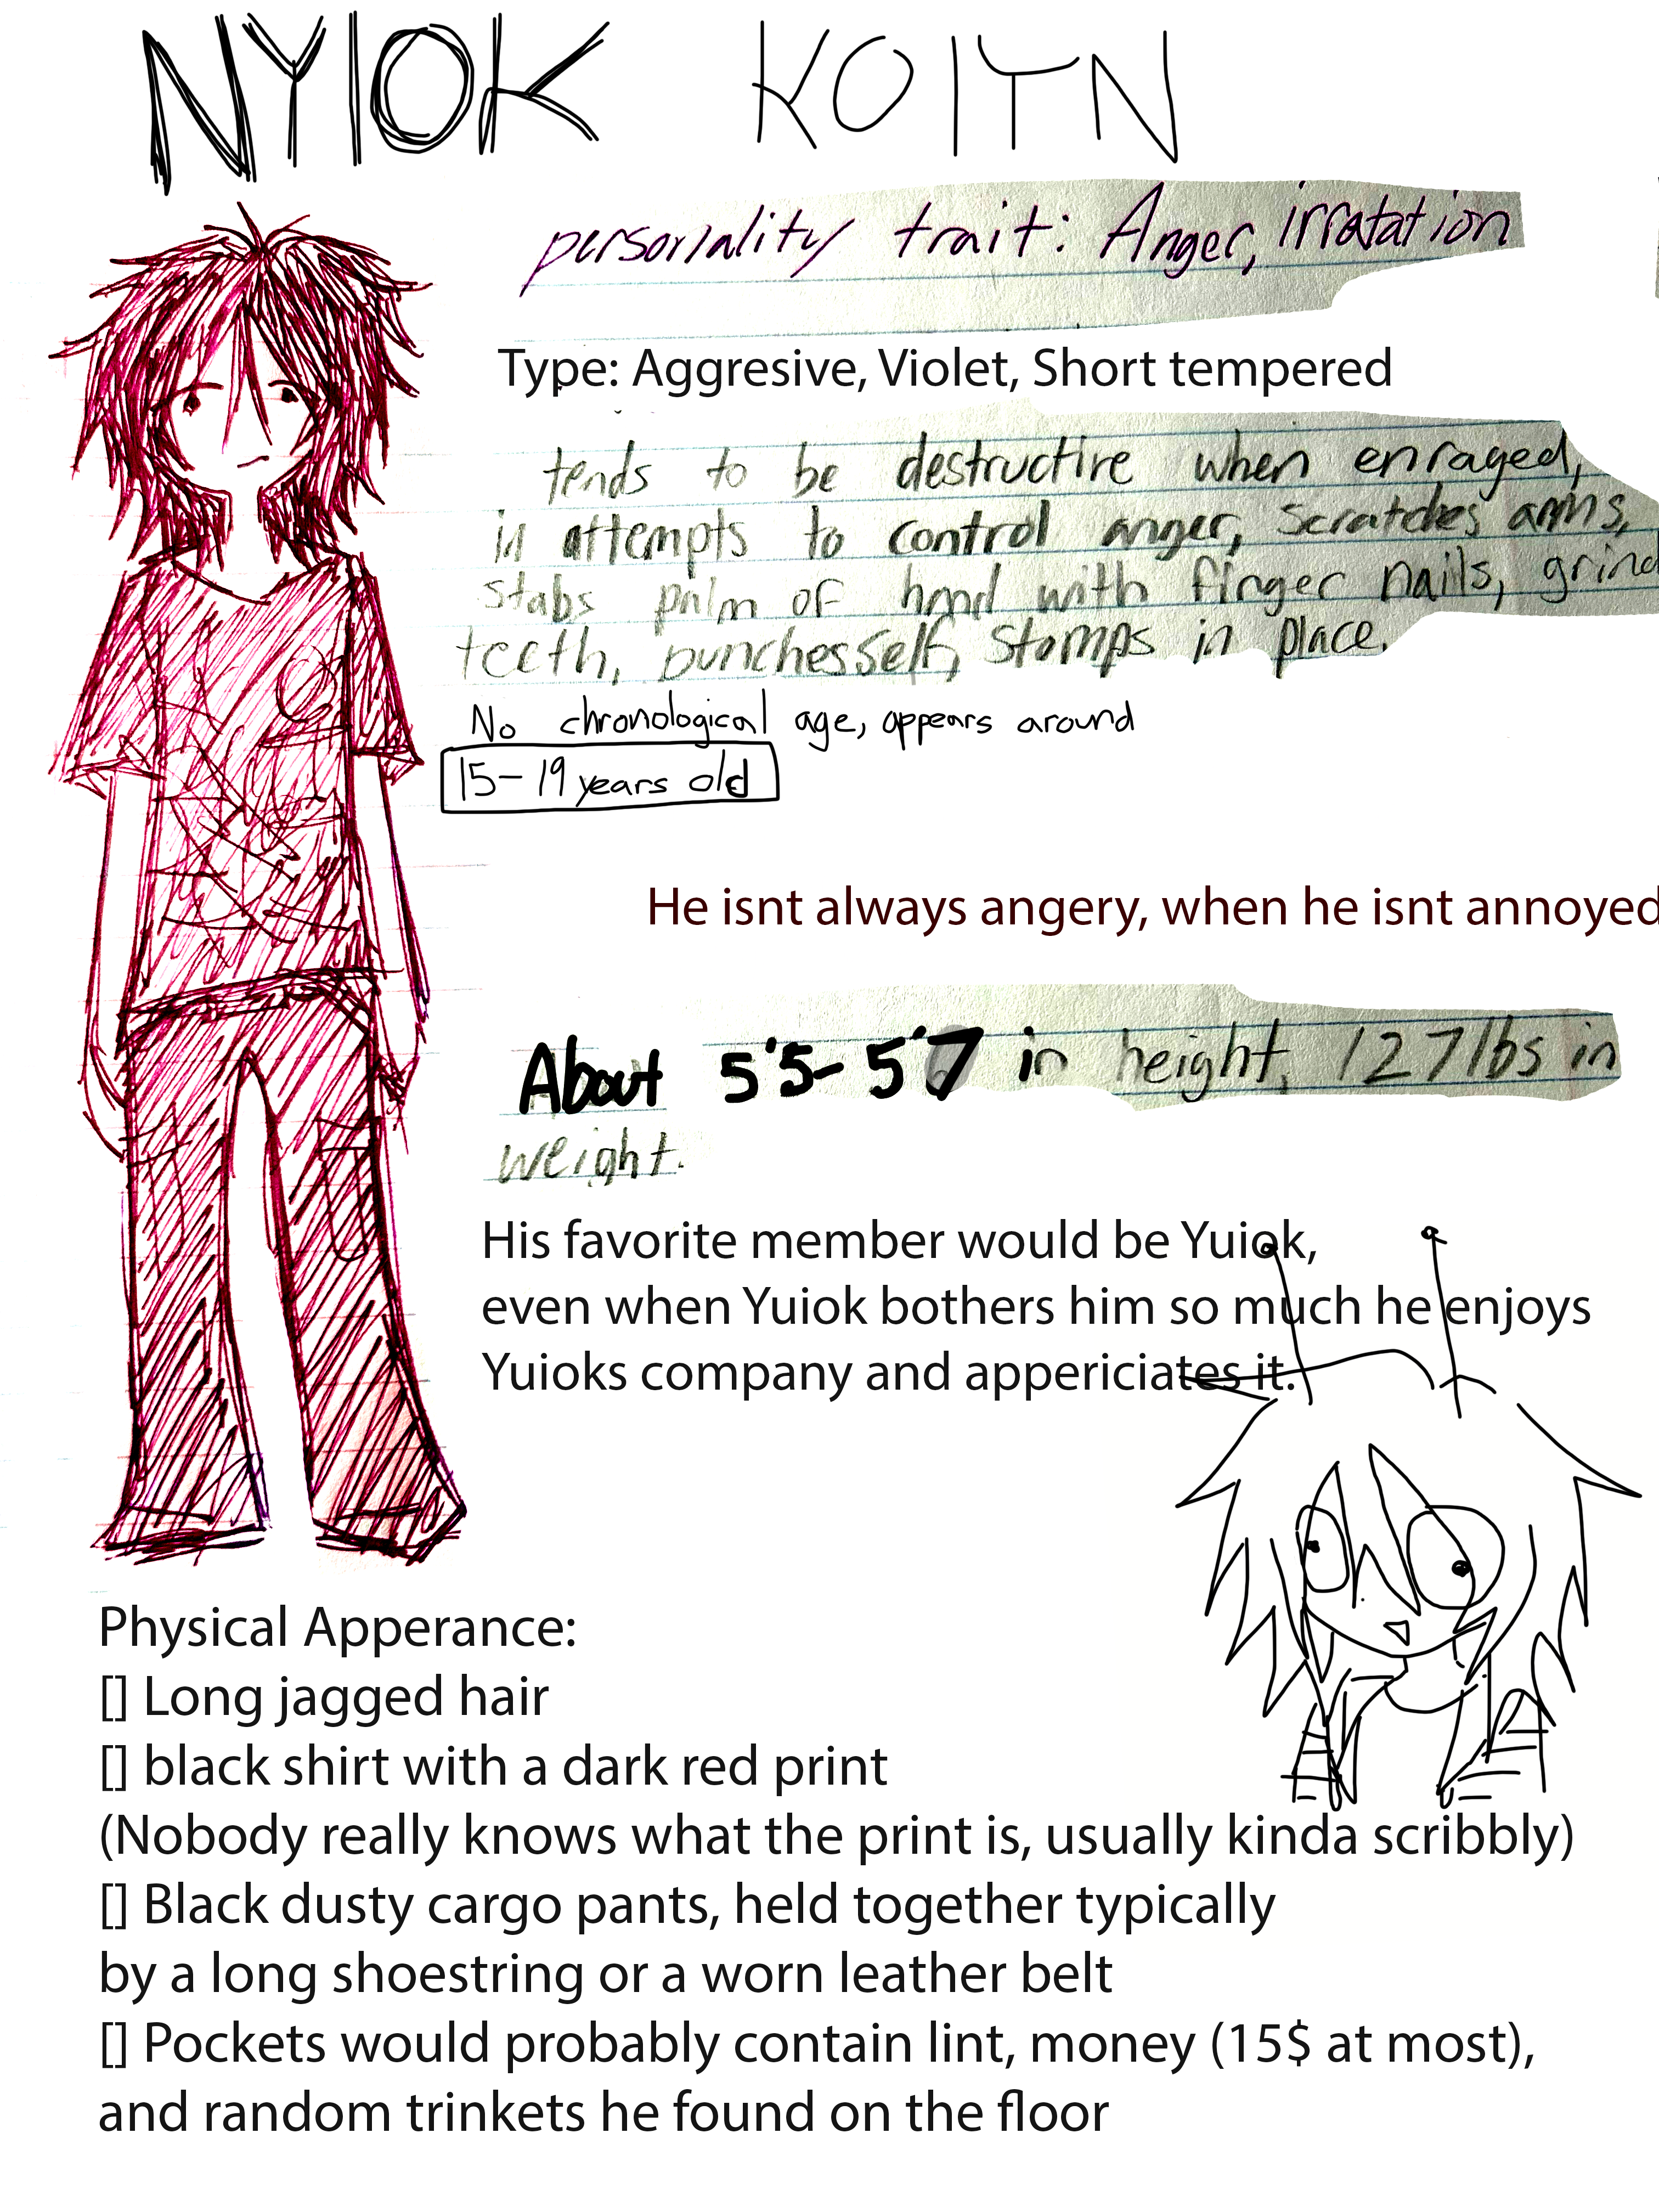 NYIOK KOITN
personality trait: Anger, irratation
Type: Aggresive, Violet, Short tempered
tends to be destructire when enraged,
in attempts to control anger, scratches arms,
stabs palm of hand with finger nails, grind
teeth, punches self, stomps in place.
No chronological age, appears around
15-19 years old
He isnt always angery, when he isnt annoyed
About 5'5-5'7 in height, 127lbs in
weight.
His favorite member would be Yuiok,
even when Yuiok bothers him so much he enjoys
Yuioks company and appericiates it.
Physical Apperance:
[] Long jagged hair
[] black shirt with a dark red print
(Nobody really knows what the print is, usually kinda scribbly)
[] Black dusty cargo pants, held together typically
by a long shoestring or a worn leather belt
[] Pockets would probably contain lint, money (15$ at most),
and random trinkets he found on the floor